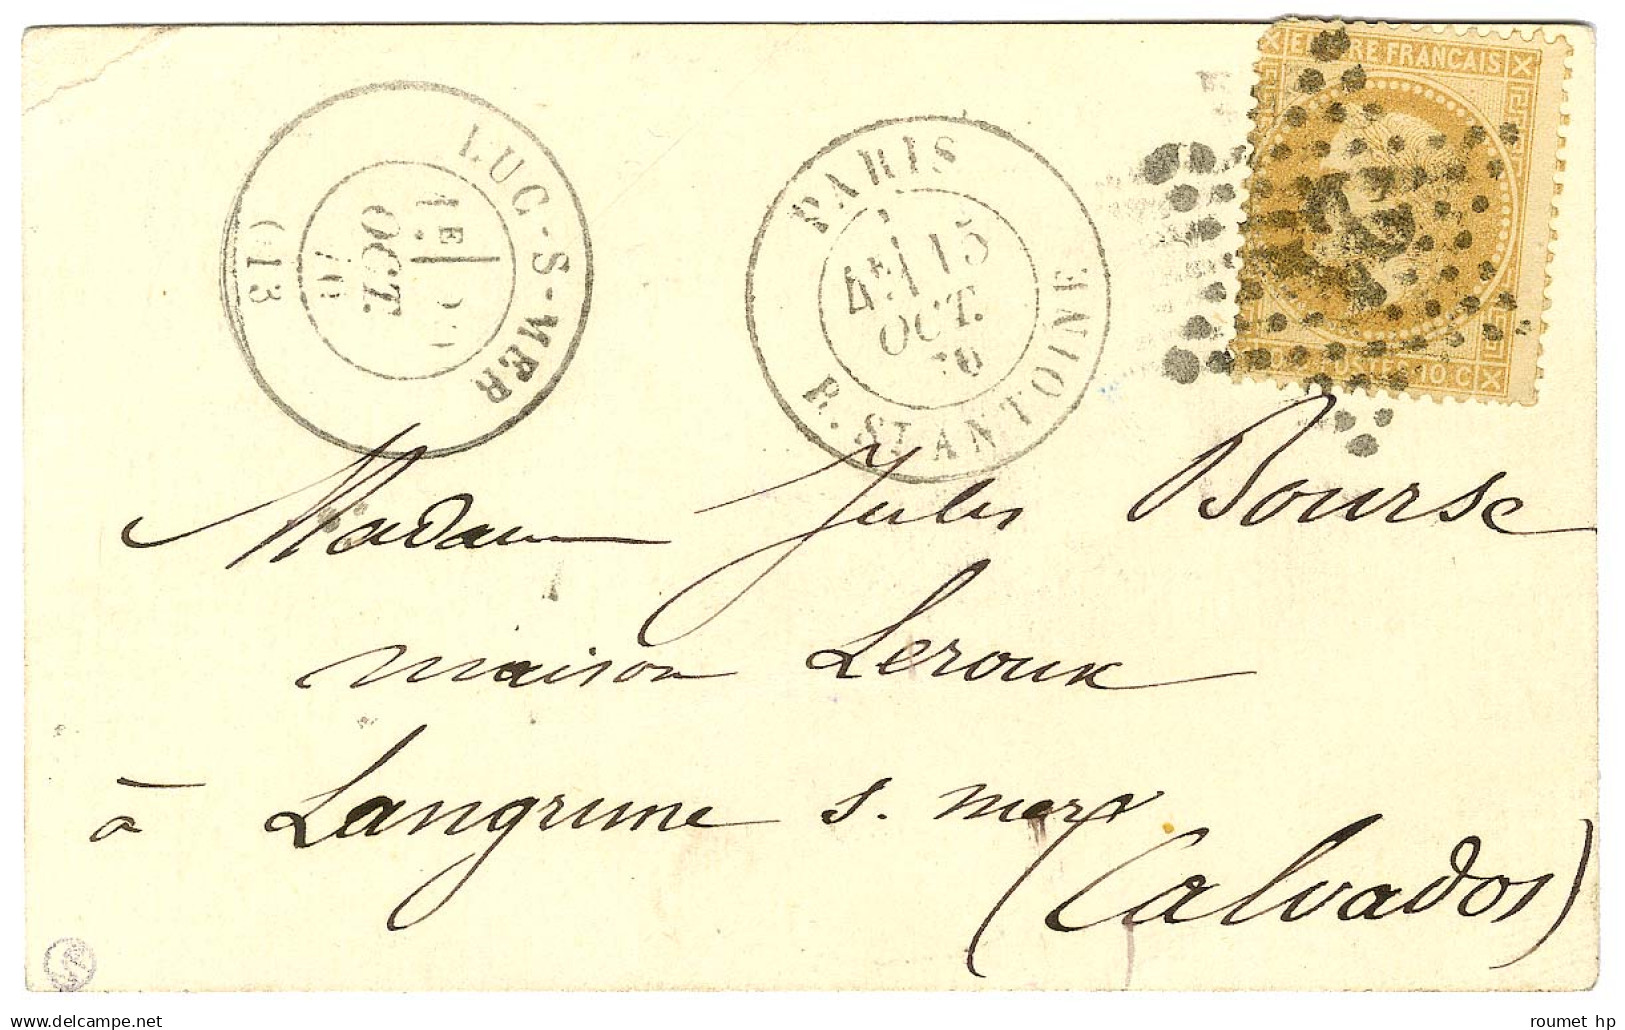 EMPIRE FRANCAIS
POSTES 10 C
LUC-S-MER
1E
OCT.
70
(13)
PARIS
4E 15
OCT.
70
R. ST ANTOINE
Madame Jules Bourse
maison Leroux
à Langrune s. mer
(Calvados)
www.delcampe.net
roumet hp